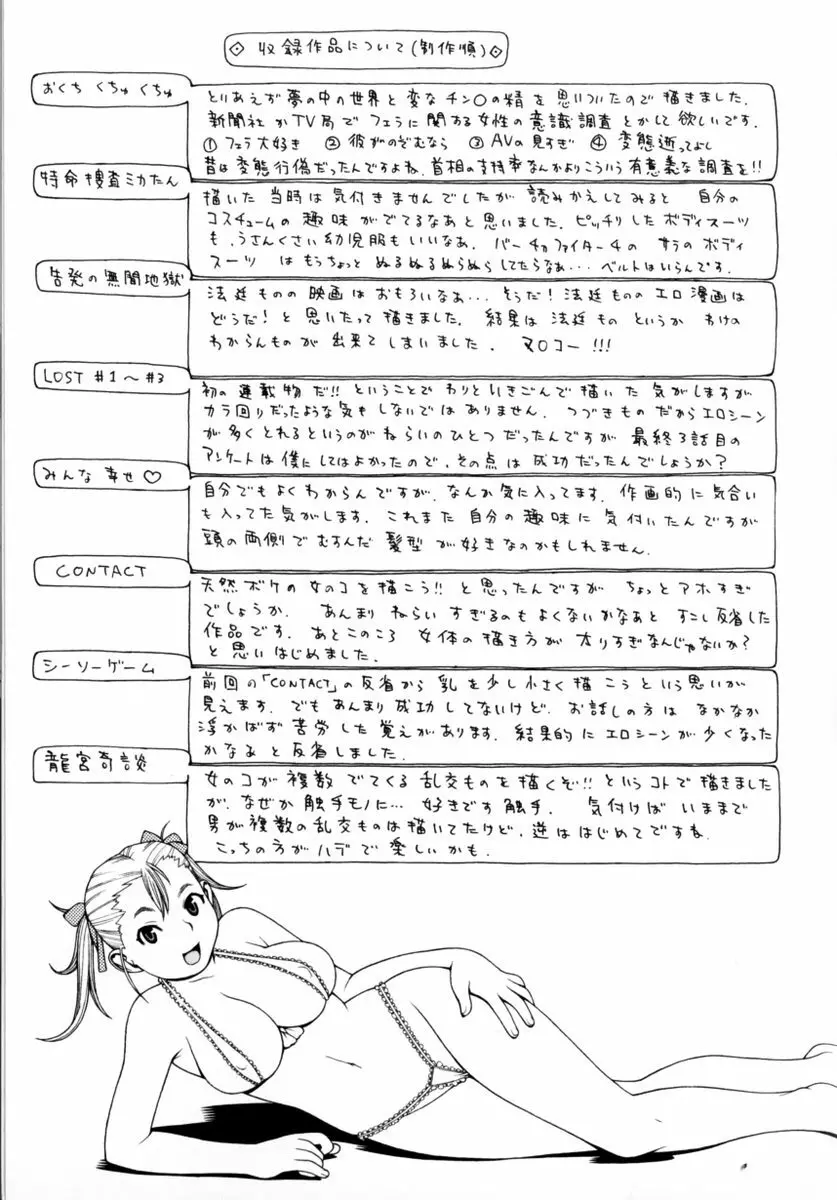 収録作品について(制作順)
おくち くちゅ くちゅ
とりあえず夢の中の世界と変なチン〇の精を思いついたので描きました.
新聞社かTV局でフェラに関する女性の意識調査とかして欲しいです.
①フェラ大好き ②彼がのぞむなら ③AVの見すぎ ④変態逝ってよし
昔は変態行偽だったんですよね.首相の支持率なんかよりこういう有意義な調査を!!
特命捜査ミカたん
描いた当時は気付きませんでしたが読みかえしてみると 自分の
コスチュームの趣味がでてるなあと思いました.ピッチリしたボディスーツ
も、うさんくさい幼児服もいいなあ. バーチャファイター4の サラのボディ
スーツ はもうちょっと ぬるぬるぬらぬらしてたらなあ… ベルトはいらんです.
告発の無間地獄
法廷ものの映画はおもろいなあ… そうだ!法廷もののエロ漫画は
どうだ!と思いたって描きました. 結果は法廷ものというか わけの
わからんものが出来てしまいました. ヌロコー!!!
LOST #1〜#3
初の連載物だ!!ということでわりといきごんで描いた気がしますが
カラ回りだったような気もしないではありません. つづきものだからエロシーン
が多くとれるというのがねらいのひとつだったんですが 最終3話目の
アンケートは僕にしてはよかったので、その点は成功だったんでしょうか?
みんな幸せ♡
自分でもよくわからんですが、なんか気に入ってます. 作画的に気合い
も入ってた気がします. これまた自分の趣味に気付いたんですが
頭の両側でむすんだ髪型が好きなのかもしれません.
CONTACT
天然ボケの女のコを描こう!!と思ったんですが ちょっとアホすぎ
でしょうか. あんまりねらいすぎるのもよくないかなあと すこし反省した
作品です. あとこのころ 女体の描き方が太りすぎなんじゃないか?
と思いはじめました.
シーソーゲーム
前回の「CONTACT」の反省から乳を少し小さく描こうという思いが
見えます. でもあんまり成功してないけど. お話しの方はなかなか
浮かばず苦労した覚えがあります. 結果的にエロシーンが少くなった
かなあと反省しました.
龍宮奇談
女のコが複数でてくる乱交ものを描くぞ!!というコトで描きました
が、なぜか触手モノに… 好きです触手. 気付けばいままで
男が複数の乱交ものは描いてたけど、逆ははじめてですね.
こっちの方がハデで楽しいかも.